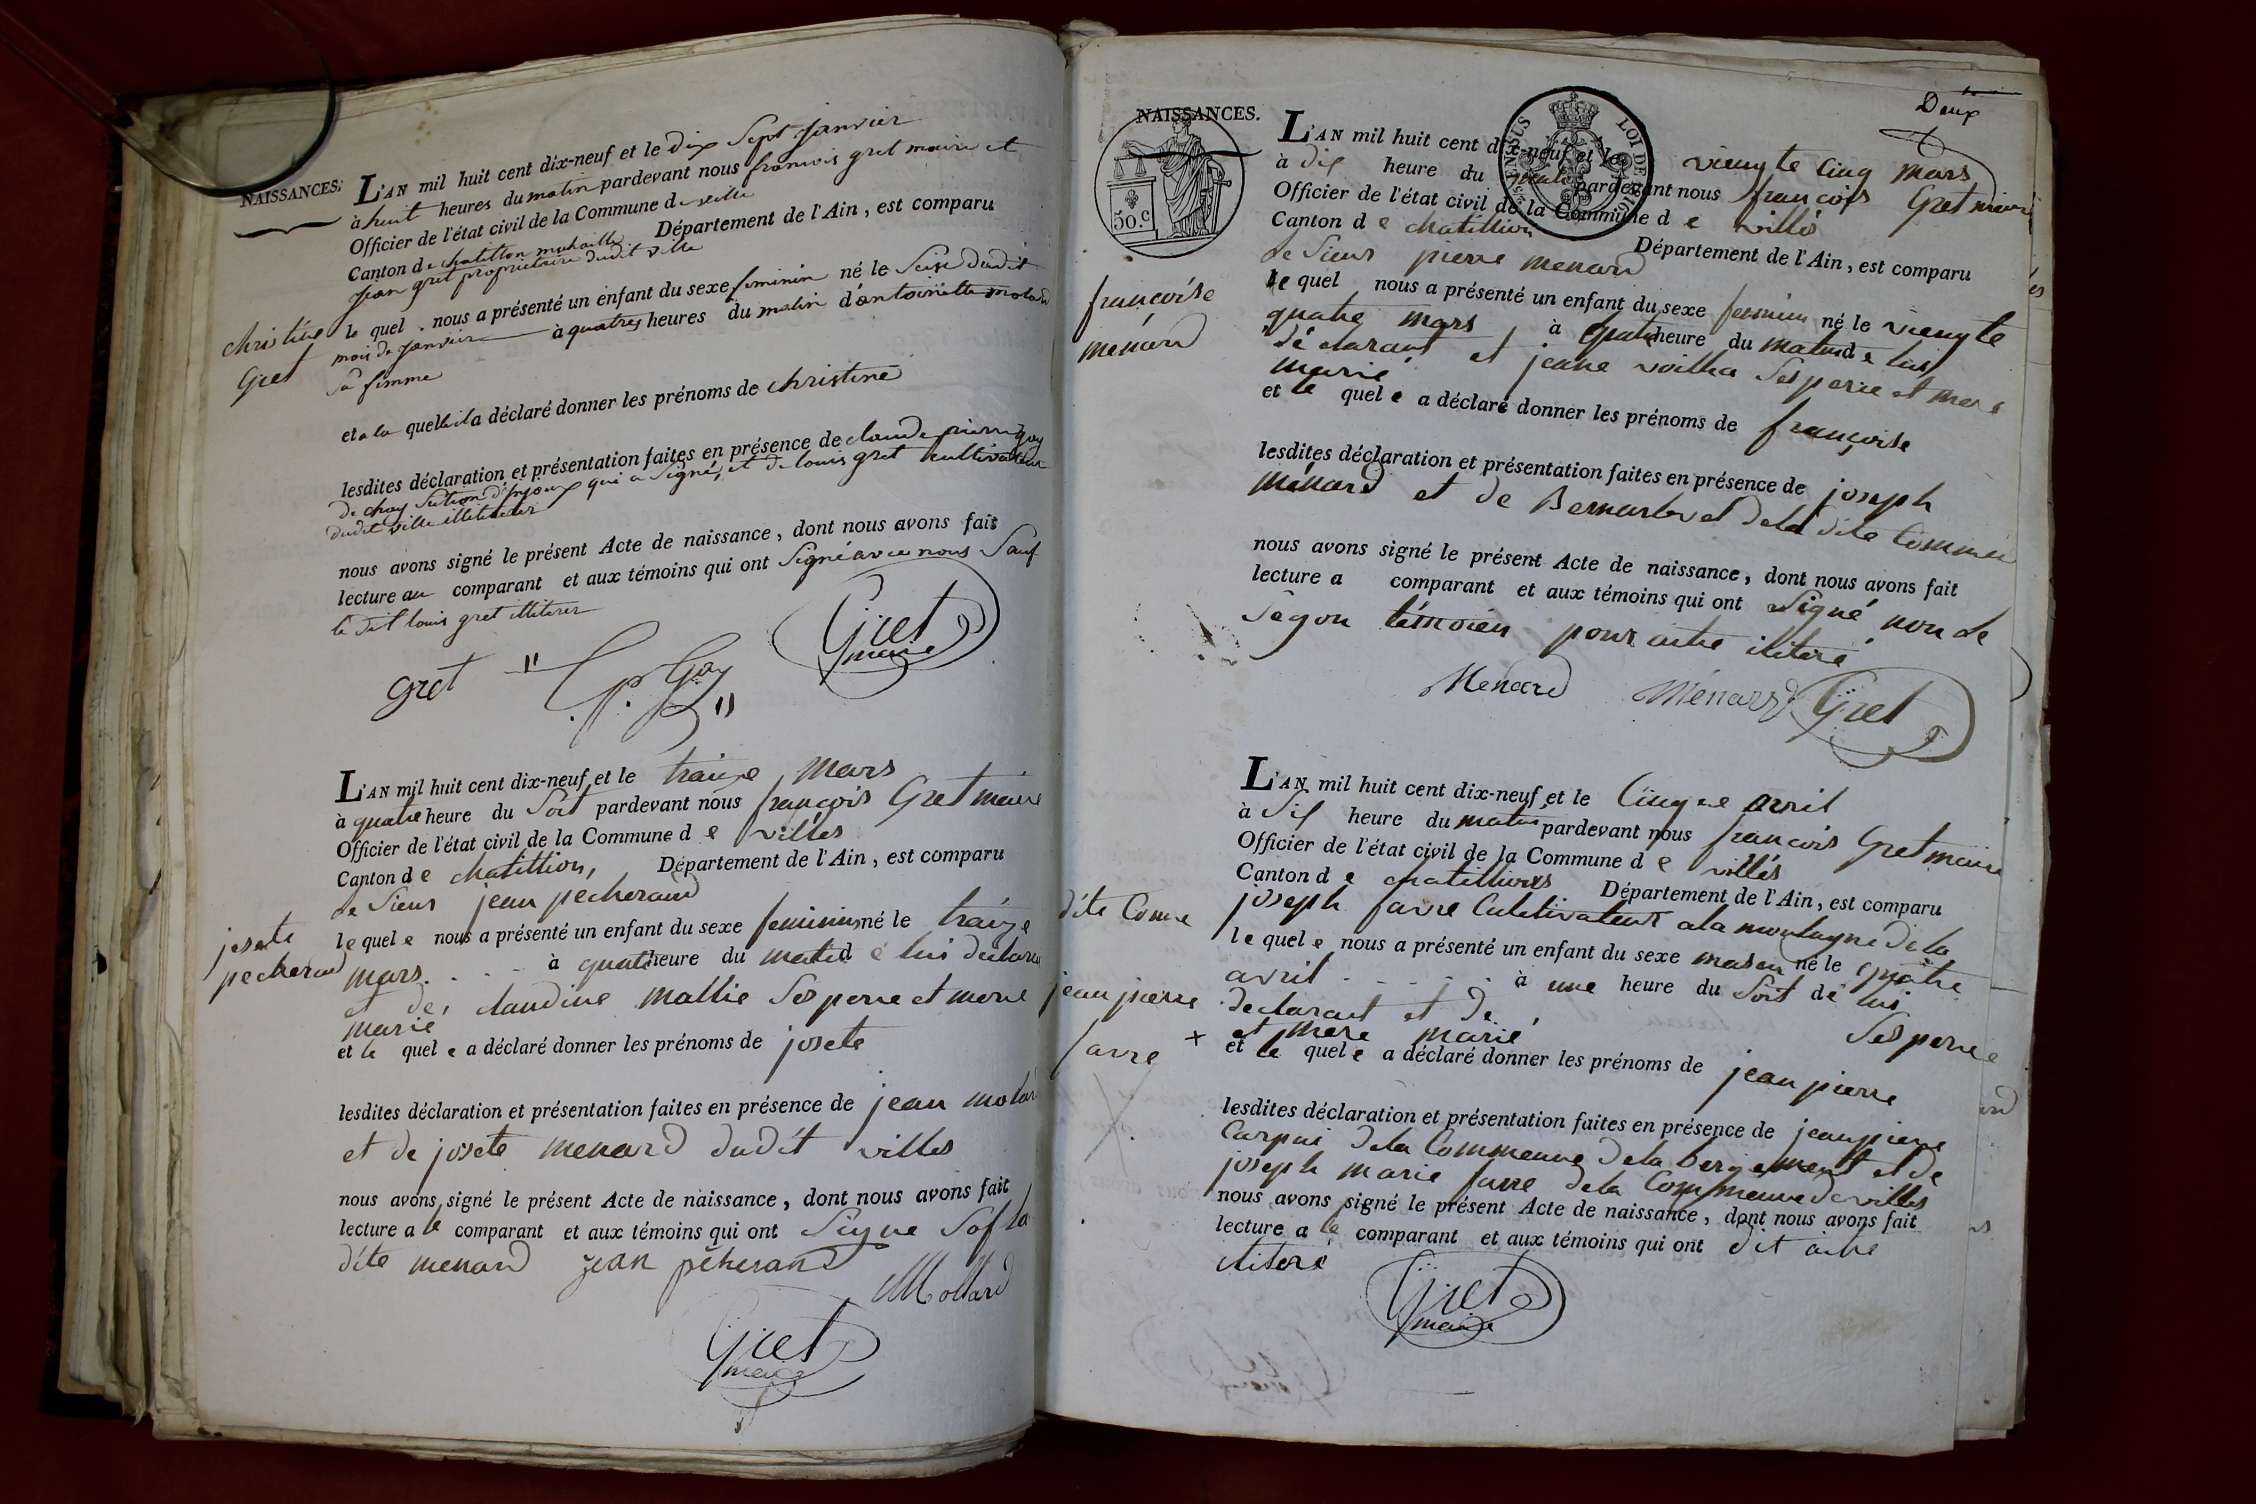 NAISSANCES.
L'AN mil huit cent dix-neuf et le dix Sept Janvier
à huit heures du matin pardevant nous francois gret maire et
Officier de l'état civil de la Commune de ville
Canton de chatillon michaille Département de l'Ain, est comparu
Jean gret propriétaire dudit ville
le quel nous a présenté un enfant du sexe feminin né le Seise dudit
mois de Janvier à quatres heures du matin d'antoinette molard
sa femme
christine
Gret
et a la quelle il a déclaré donner les prénoms de christine
lesdites déclaration et présentation faites en présence de claude pierre gay
de chay Section d'injoux qui a Signé, et de louis gret cultivateur
dudit ville illiterer
nous avons signé le présent Acte de naissance, dont nous avons fait
lecture au comparant et aux témoins qui ont Signé avec nous Sauf
le dit louis gret illiterer
gret C. p. Gay Gret
maire
L'AN mil huit cent dix-neuf et le traize mars
à quatre heure du Soit pardevant nous françois Gret maire
Officier de l'état civil de la Commune d e villes
Canton d e chatillion, Département de l'Ain, est comparu
le Sieur jean pecheraud
le quel e nous a présenté un enfant du sexe feminin né le traize
mars. à quatre heure du matid d e lui declaran
et de, claudine mallie Ses perre et merre
marié
josete
pecheraud
et le quel e a déclaré donner les prénoms de josete
lesdites déclaration et présentation faites en présence de jean molar
et de josete menard dudit villes
nous avons signé le présent Acte de naissance, dont nous avons fait
lecture a le comparant et aux témoins qui ont Signe Sof la
dite menard jean péheraud
Mollard
Gret
maire
Deux
NAISSANCES.
50.c
CENSUS LOI DE 1816
L'AN mil huit cent dix-neuf et le vieng te cinq mars
à dix heure du matin pardevant nous françois Gret maire
Officier de l'état civil de la Commune d e villés
Canton d e chatillion Département de l'Ain, est comparu
le Sieur pierre menard
le quel nous a présenté un enfant du sexe feminin né le vieng te
quatre mars à quatre heure du matin d e lui
déclarant et jeane voilha Ses perre et mere
marié
françoise
menard
et le quel e a déclaré donner les prénoms de françoise
lesdites déclaration et présentation faites en présence de joseph
ménard et de Bernard de la dite Commeu
nous avons signé le présent Acte de naissance, dont nous avons fait
lecture a comparant et aux témoins qui ont Signé non le
Segon témoien pour aitre iliteré
Menard Ménard Gret
L'AN mil huit cent dix-neuf et le Cinq e avril
à dix heure du matin pardevant nous francois Gret maire
Officier de l'état civil de la Commune d e villés
Canton d e chatillions Département de l'Ain, est comparu
joseph favre Cultivateur a la montagne de la
dite Come
le quel e nous a présenté un enfant du sexe mascu né le quatre
avril à une heure du Soit de lui
declarant et de Ses perre
et mere marié
jean pierre
favre
et le quel e a déclaré donner les prénoms de jean pierre
lesdites déclaration et présentation faites en présence de jean pierre
Carpin de la Commeune de la bergement et de
joseph marie favre de la Commeune de villes
nous avons signé le présent Acte de naissance, dont nous avons fait
lecture a le comparant et aux témoins qui ont dit aitre
iliteré
Gret
maire